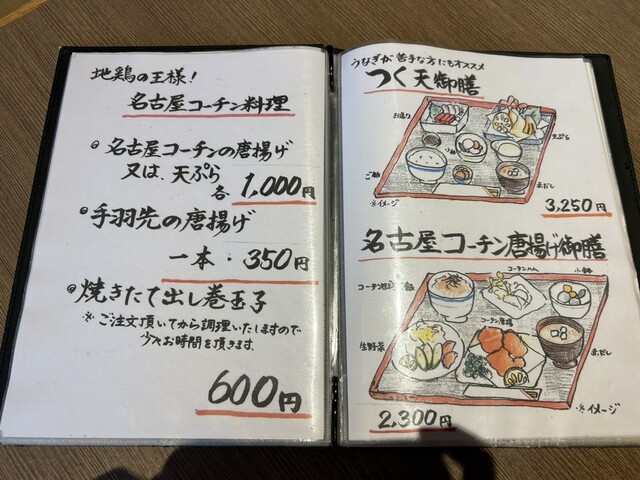 地鶏の王様!
名古屋コーチン料理
名古屋コーチンの唐揚げ
又は、天ぷら
各 1,000円
手羽先の唐揚げ
一本・350円
焼きたて出し巻玉子
※ご注文頂いてから調理いたしますので
少々お時間を頂きます。
600円
うなぎが苦手な方にもオススメ
つく天御膳
お造り
天ぷら
ご飯
赤だし
※イメージ
3,250円
名古屋コーチン唐揚げ御膳
コーチンハム
小鉢
コーチン唐揚
生野菜
赤だし
※イメージ
2,300円